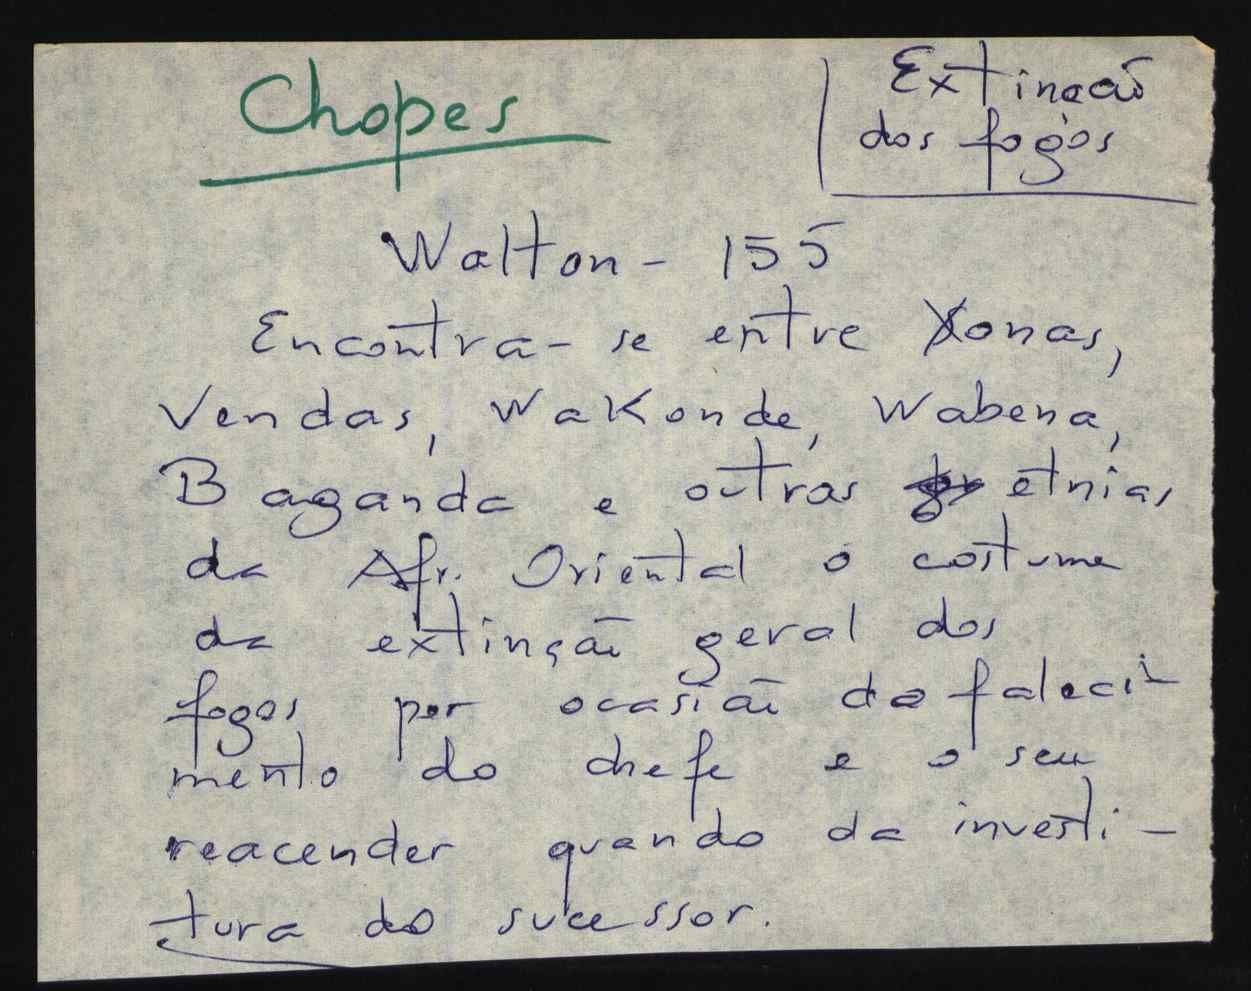 Chopes
Extinção
dos fogos
Walton - 155
Encontra-se entre Xonas,
Vendas, WaKonde, Wabena,
Baganda e outras etnias
da Afr. Oriental o costume
da extinção geral dos
fogos por ocasião do faleci-
mento do chefe e o seu
reacender quando da investi-
tura do sucessor.